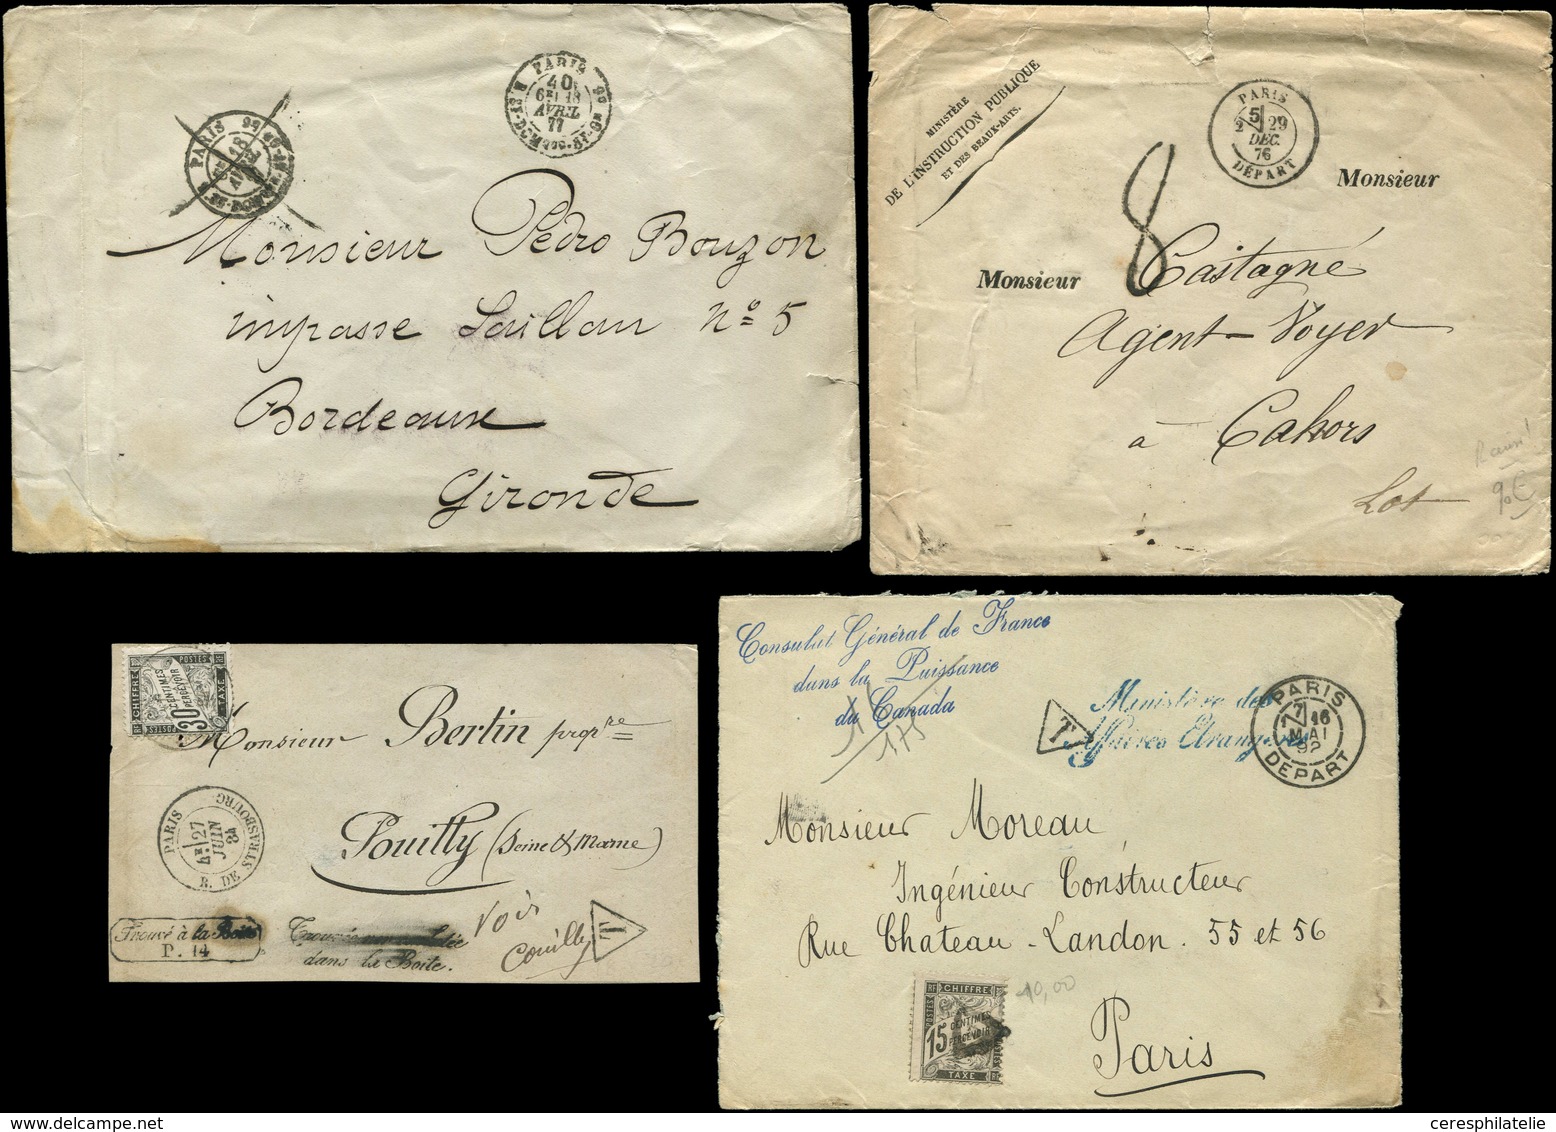 PARIS
18
PARIS
40
6E 18
AVRIL
77
Monsieur Pedro Bouzon
impasse Saillan No 5
Bordeaux
Gironde
MINISTÈRE
DE L'INSTRUCTION PUBLIQUE
ET DES BEAUX-ARTS.
PARIS
5
2 29
DEC.
76
DÉPART
8
Monsieur
Monsieur
Castagné
Agent-Voyer
à Cahors
Lot
90€
POSTES
CHIFFRE TAXE
30 CENTIMES
PERCEVOIR
Monsieur Bertin propre
Pouilly (Seine & Marne)
PARIS
4E 27
JUIN
84
R. DE STRASBOURG
Trouvé à la Boite
P. 14
dans la Boite.
Voir
Couilly
T
Consulat Général de France
dans la Puissance
du Canada
175
T
Ministère des
Affaires Etrangères
PARIS
16
MAI
92
DEPART
Monsieur Moreau
Ingénieur Constructeur
Rue Chateau-Landon. 55 et 56
Paris
10,00
CHIFFRE
POSTES
15 CENTIMES
PERCEVOIR
TAXE
ceresphilatelie